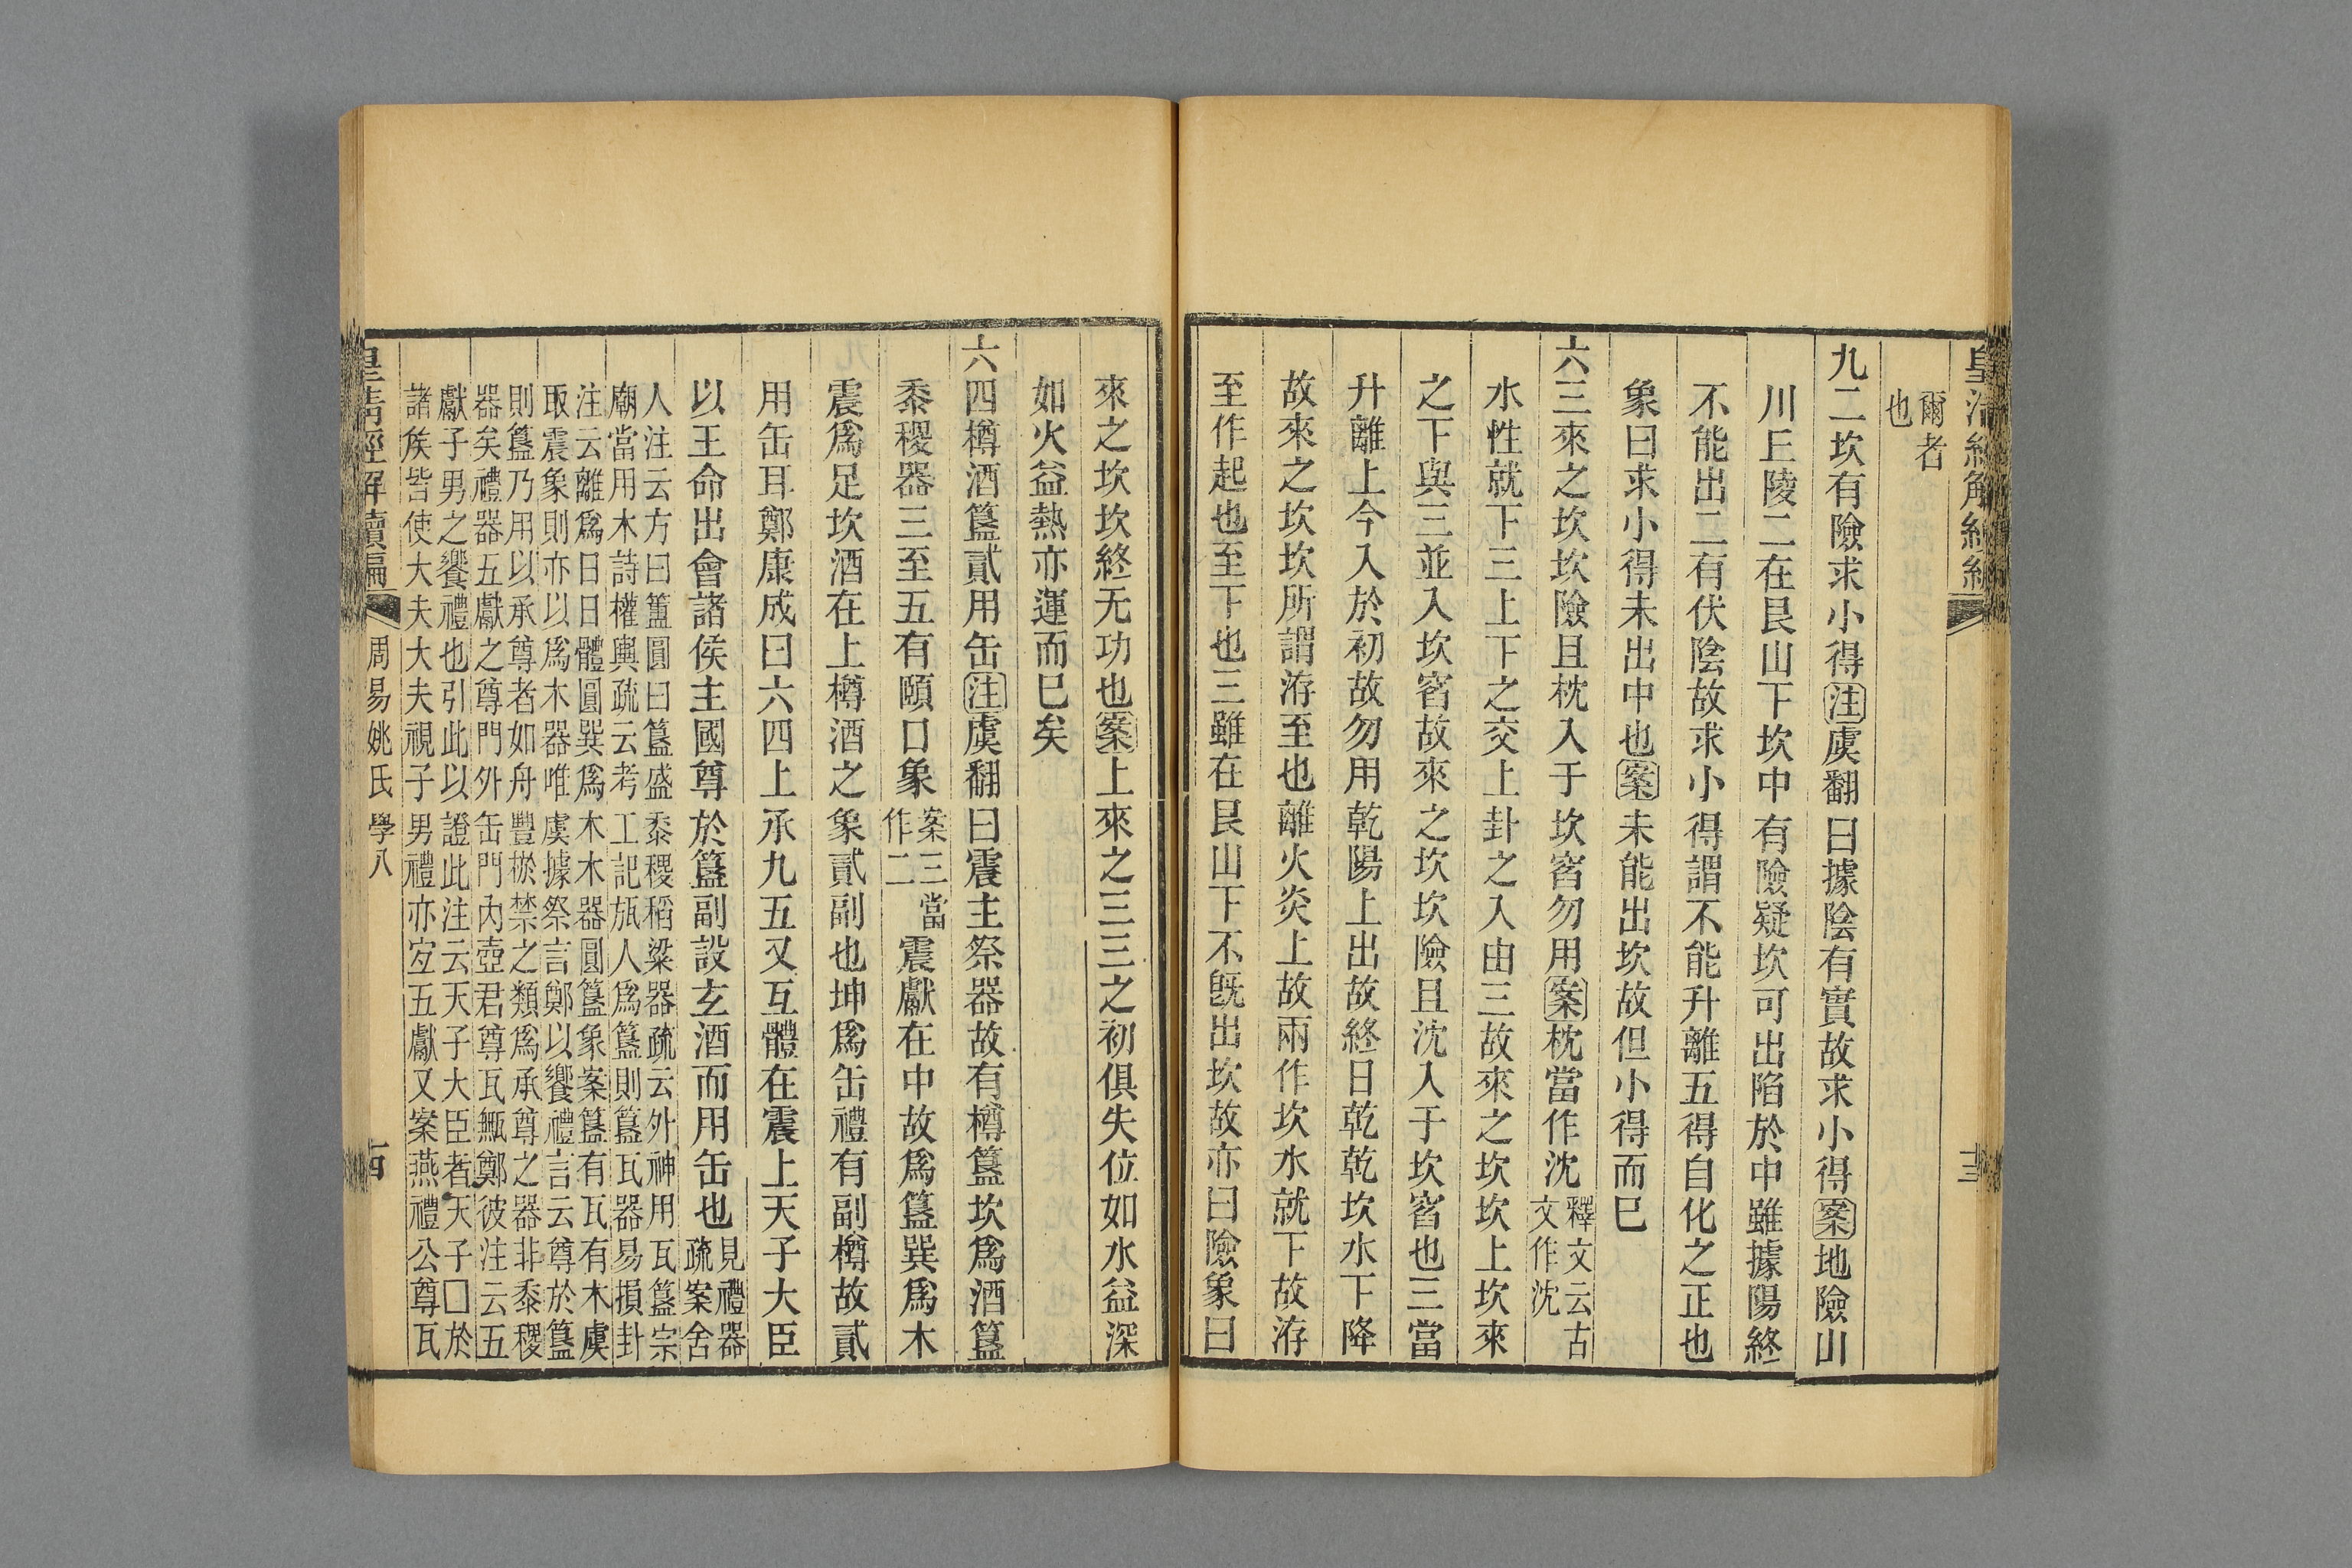 皇清經解續編
十三
爾者
也
九二坎有險求小得注虞翻曰據陰有實故求小得案地險山
川丘陵二在艮山下坎中有險疑坎可出陷於中雖據陽終
不能出二有伏陰故求小得謂不能升離五得自化之正也
象曰求小得未出中也案未能出坎故但小得而巳
六三來之坎坎險且枕入于坎窞勿用案枕當作沈釋文云古
文作沈
水性就下三上下之交上卦之入由三故來之坎坎上坎來
之下與三並入坎窞故來之坎坎險且沈入于坎窞也三當
升離上今入於初故勿用乾陽上出故終日乾乾坎水下降
故來之坎坎所謂洊至也離火炎上故兩作坎水就下故洊
至作起也至下也三雖在艮山下不旣出坎故亦曰險象曰
來之坎坎終无功也案上來之三三之初俱失位如水益深
如火益熱亦運而巳矣
六四樽酒簋貳用缶注虞翻曰震主祭器故有樽簋坎爲酒簋
黍稷器三至五有頤口象案三當
作二震獻在中故爲簋巽爲木
震爲足坎酒在上樽酒之象貳副也坤爲缶禮有副樽故貳
用缶耳鄭康成曰六四上承九五又互體在震上天子大臣
以王命出會諸侯主國尊於簋副設玄酒而用缶也見禮器
疏案舍
人注云方曰簠圓曰簋盛黍稷稻粱器疏云外神用瓦簋宗
廟當用木詩權輿疏云考工記瓬人爲簋則簋瓦器易損卦
注云離爲日日體圓巽爲木木器圓簋象案簋有瓦有木虞
取震象則亦以爲木器唯虞據祭言鄭以饗禮言云尊於簋
則簋乃用以承尊者如舟豐棜禁之類爲承尊之器非黍稷
器矣禮器五獻之尊門外缶門內壺君尊瓦甒鄭彼注云五
獻子男之饗禮也引此以證此注云天子大臣者天子□於
諸矦皆使大夫大夫視子男禮亦宐五獻又案燕禮公尊瓦
皇清經解續編
周易姚氏學八
十四